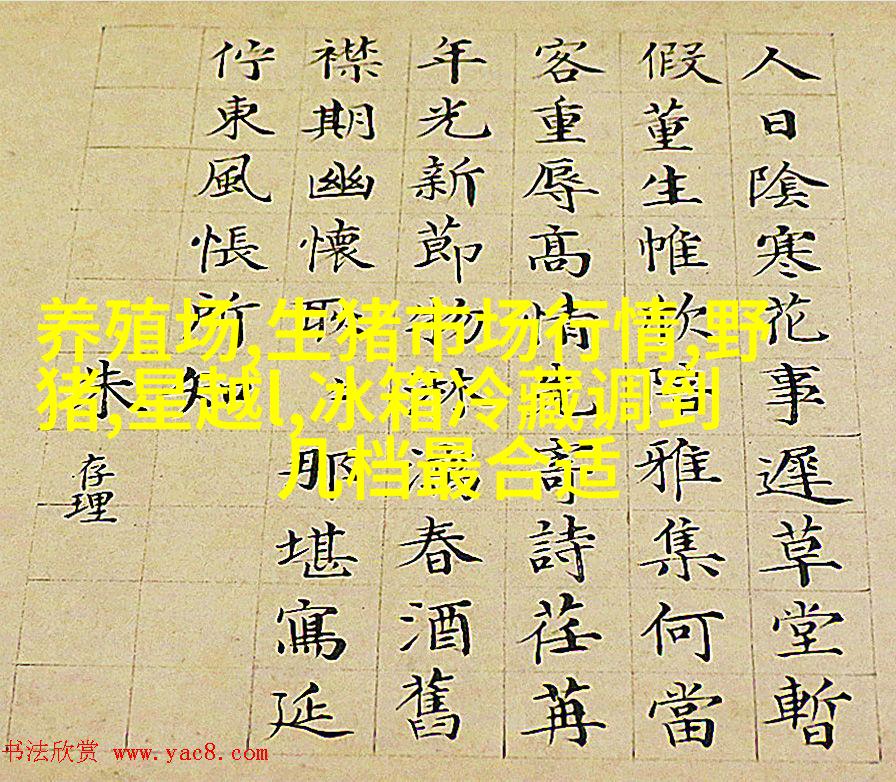 人日陰寒花事遲草堂暫
假董生帷欣陪雅集何當
客重辱高情寄詩荏苒
年光新節物春酒舊
襟期幽懷那堪寫延
佇東風悵所知
朱存理
养殖场,生猪市场行情,野
猪,星越l,冰箱冷藏调到
几档最合适
书法欣赏 www.yac8.com